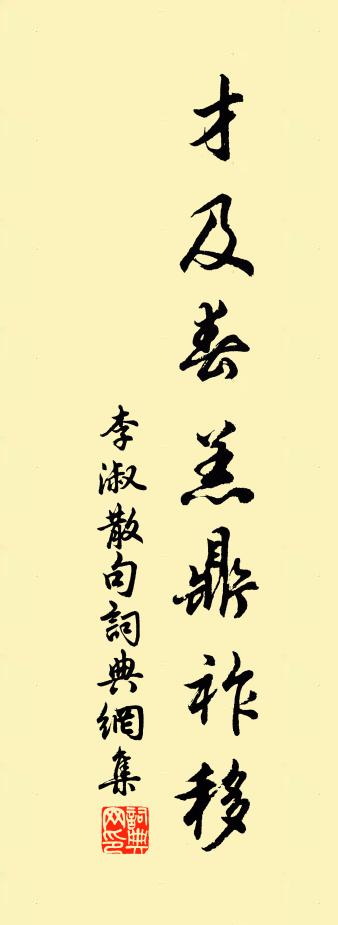 才及春羔鼎祚移
李淑散句詞典網集
詞典网印